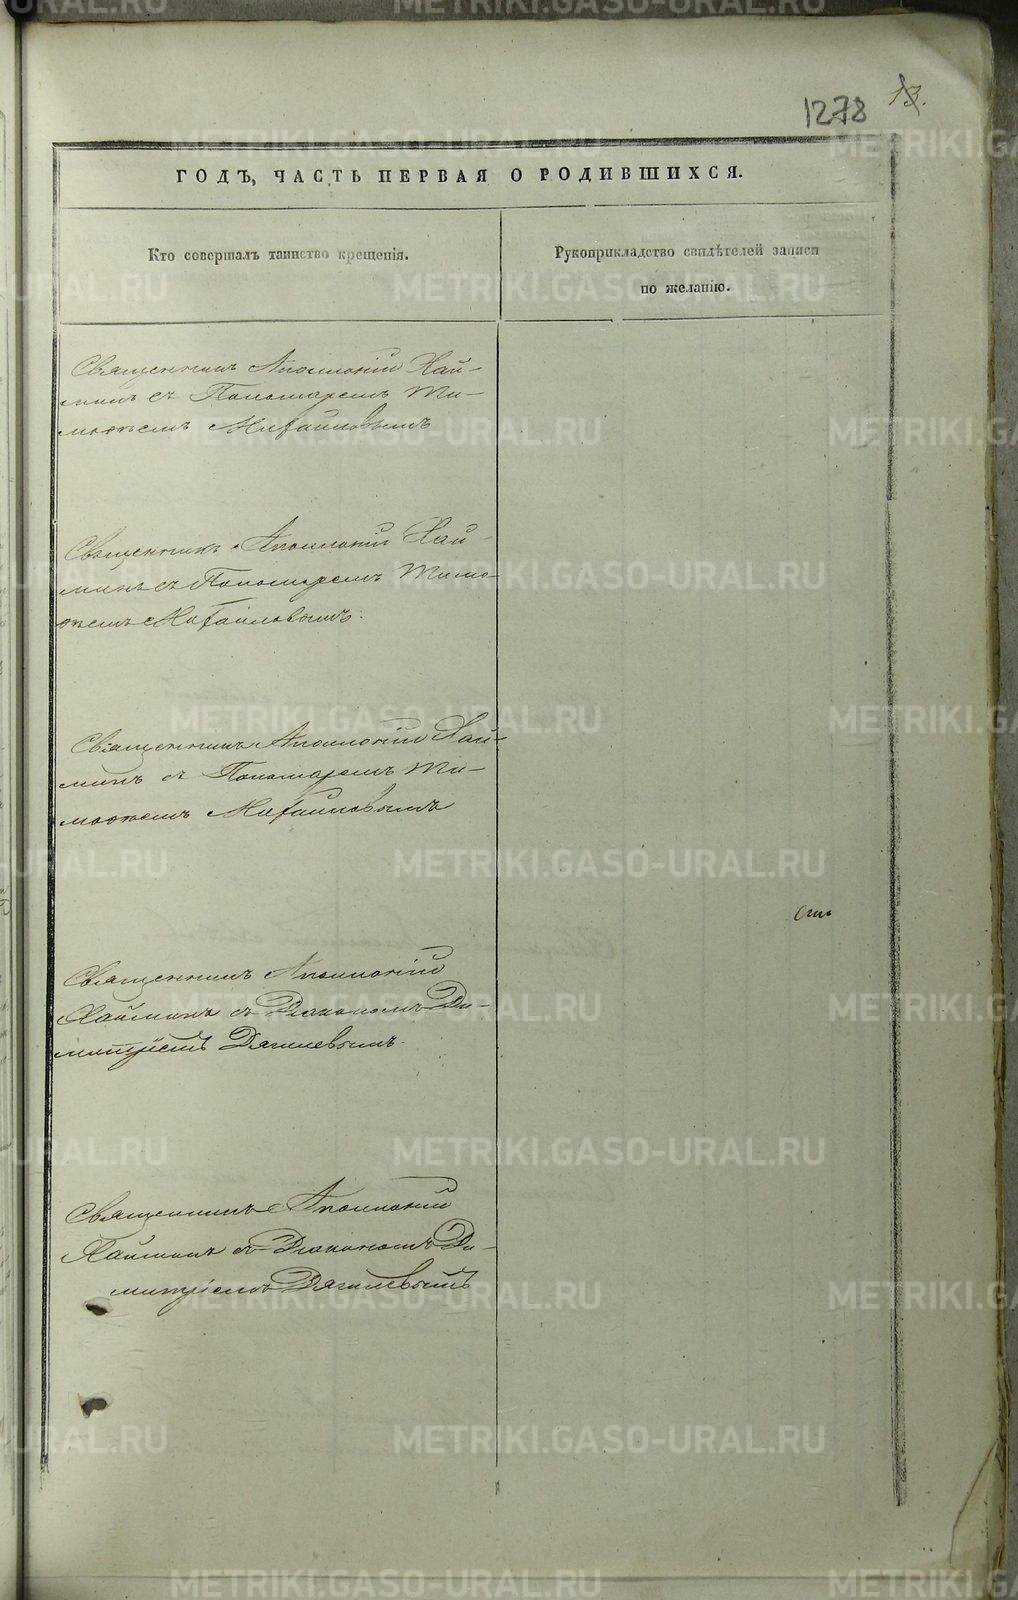 1278 13.
ГОДЪ, ЧАСТЬ ПЕРВАЯ О РОДИВШИХСЯ.
Кто совершалъ таинство крещенія.
Рукоприкладство свидѣтелей записи
по желанію.
Священникъ Аполлоній Хай-
минъ съ Пономаремъ Ти-
моѳеемъ Михайловымъ
Священникъ Аполлоній Хай-
минъ съ Пономаремъ Тимо-
ѳеемъ Михайловымъ.
Священникъ Аполлоній Хай-
минъ съ Пономаремъ Ти-
моѳеемъ Михайловымъ
Священникъ Аполлоній
Хайминъ съ Діакономъ Ди-
митріемъ Дягилевымъ.
Священникъ Аполлоній
Хайминъ съ Діакономъ Ди-
митріемъ Дягилевымъ
METRIKI.GASO-URAL.RU